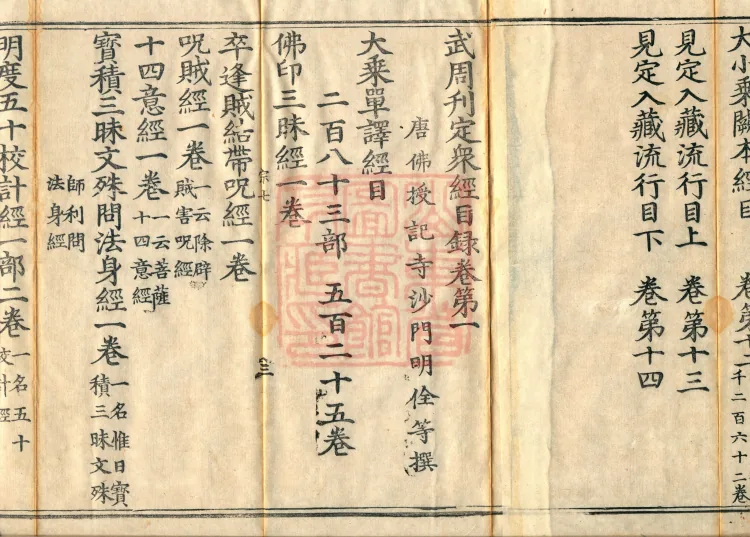 大小乘闕本經目 卷第十二 千二百六十二卷
見定入藏流行目上 卷第十三
見定入藏流行目下 卷第十四
武周刊定衆經目録卷第一
唐佛授記寺沙門明佺等撰
大乘單譯經目
二百八十三部 五百二十五卷
佛印三昧經一卷
宗七
三
卒逢賊結帶呪經一卷
呪賊經一卷 一云除辟賊害呪經
十四意經一卷 一云菩薩十四意經
寶積三昧文殊問法身經一卷 一名惟日寶積三昧文殊師利問法身經
明度五十校計經一部二卷 一名五十